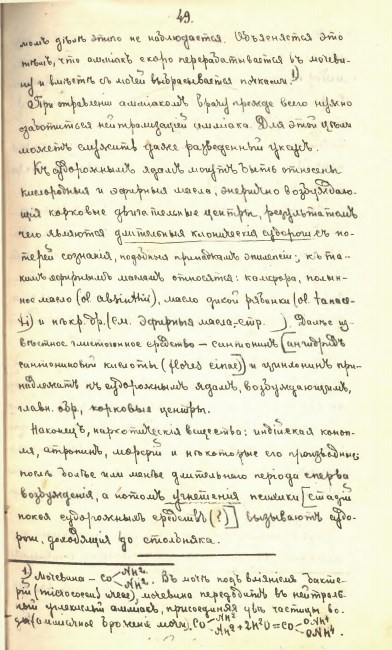 49.
момъ дѣлѣ этого не наблюдается. Объясняется это
тѣмъ, что амміакъ скоро перерабатывается въ мочеви-
ну и вмѣстѣ съ мочей выбрасывается почками¹).
При отравленіи амміакомъ врачу прежде всего нужно
заботиться нейтрализаціей амміака. Для этой цѣли
можетъ служить даже разведенный уксусъ.
Къ судорожнымъ ядамъ могутъ быть отнесены
кислородныя и эфирныя масла, энергично возбуждаю-
щія корковые двигательные центры, результатомъ
чего являются длительныя клоническія судороги съ по-
терей сознанія, подобныя припадкамъ эпилепсіи; къ та-
кимъ эфирнымъ масламъ относятся: камфора, полын-
ное масло (ol. absinthii), масло дикой рябинки (ol. tanace-
ti) и нѣкр. др. (см. эфирныя масла,-стр. ). Далѣе из-
вѣстное глистогонное средство - сантонинъ [ангидридъ
сантониновой кислоты (flores cinae)] и при-
надлежатъ къ судорожнымъ ядамъ, возбуждающимъ,
главн. обр., корковые центры.
Наконецъ, наркотическія вещества: индійская коноп-
ля, атропинъ, морфій и нѣкоторые его производные;
послѣ болѣе или менѣе длительнаго періода сперва
возбужденія, а потомъ угнетенія психики [стадій
покоя судорожныхъ средствъ (?)] вызываютъ судо-
роги, доходящія до столбняка.
1) Мочевина - CO NH². NH². Въ мочѣ подъ вліяніемъ бакте-
рій (micrococcus ureae), мочевина переходитъ въ нейтраль-
ный углекислый амміакъ, присоединяя двѣ частицы во-
ды (амміачное броженіе мочи). CO NH² NH² + 2H²O = CO O.NH⁴ ONH⁴.